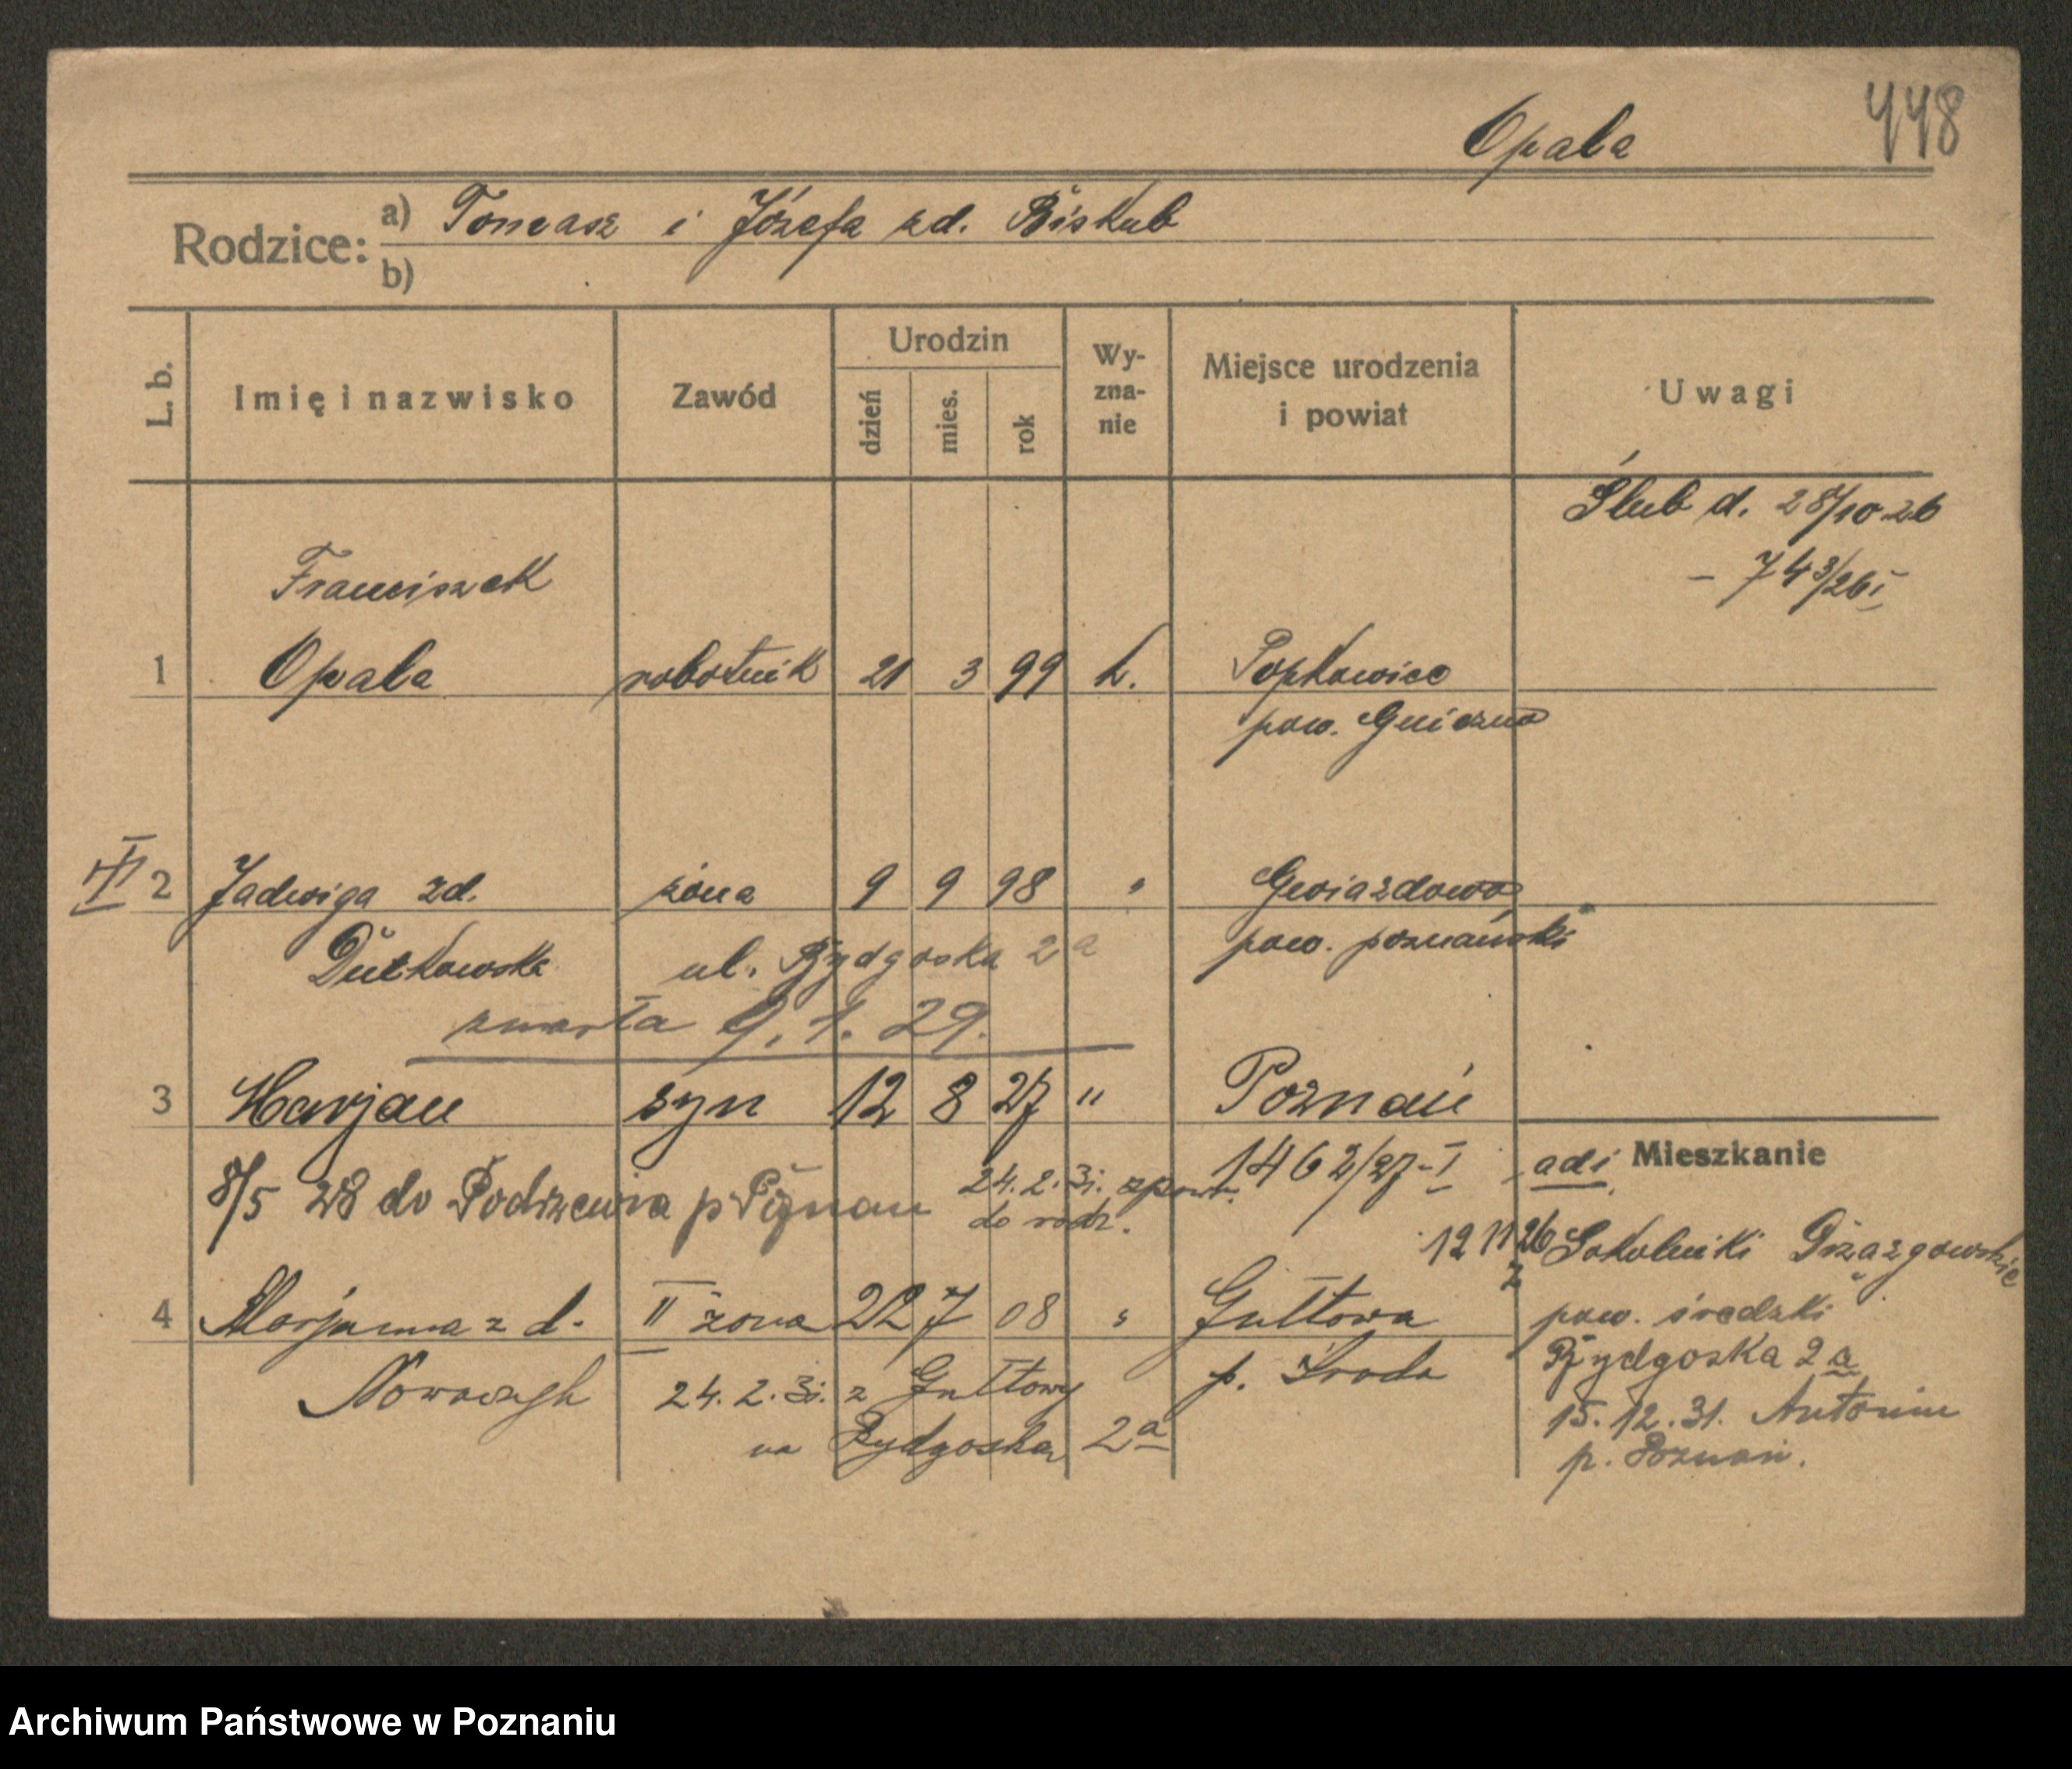 Opala
448
Rodzice: a) Tomasz i Józefa zd. Biskub
b)
L. b.
Imię i nazwisko
Zawód
Urodzin
dzień
mies.
rok
Wy-
zna-
nie
Miejsce urodzenia
i powiat
Uwagi
Ślub d. 28/10 26
- 743/26 I
Franciszek
1 Opala robotnik 21 3 99 k. Popkowice
pow. Gniezno
I 2 Jadwiga zd. żona 9 9 98 " Gwiazdowo
Dutkowska ul. Bydgoska 2a pow. poznański
zmarła 9.1.29.
3 Marjan syn 12 8 27 " Poznań
1462/27-I
8/5 28 do Podrzewia p Poznań 24.2.31. zpowr.
do rodz.
adi Mieszkanie
12 11 26 Sokolniki Drzazgowskie
z pow. średzki
4 Marjanna z d. II żona 22 7 08 " Gułtowa
Nowaczyk 24.2.31. z Gułtowy p. Środa
na Bydgoską 2a
Bydgoska 2a
15.12.31. Antonin
p. Poznań.
Archiwum Państwowe w Poznaniu